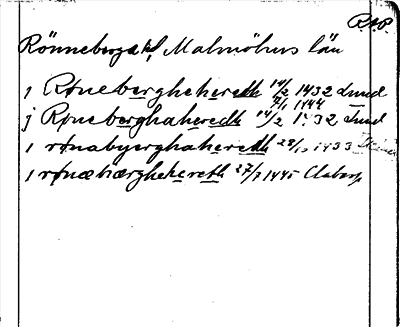 R.A.P.
Rönnebergs hd, Malmöhus län
j Røneberghehereth 14/2 1432 Lund
7/1 1444
j Røneberghaheredh 14/2 1432 Lund
j rønabyerghahereth 28/10 1433
j rønæbærghehereth 27/7 1445 Claberp